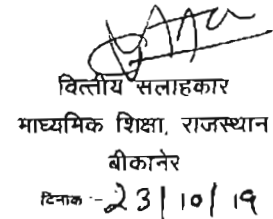 वित्तीय सलाहकार
माध्यमिक शिक्षा, राजस्थान
बीकानेर
दिनांक :- 23/10/19